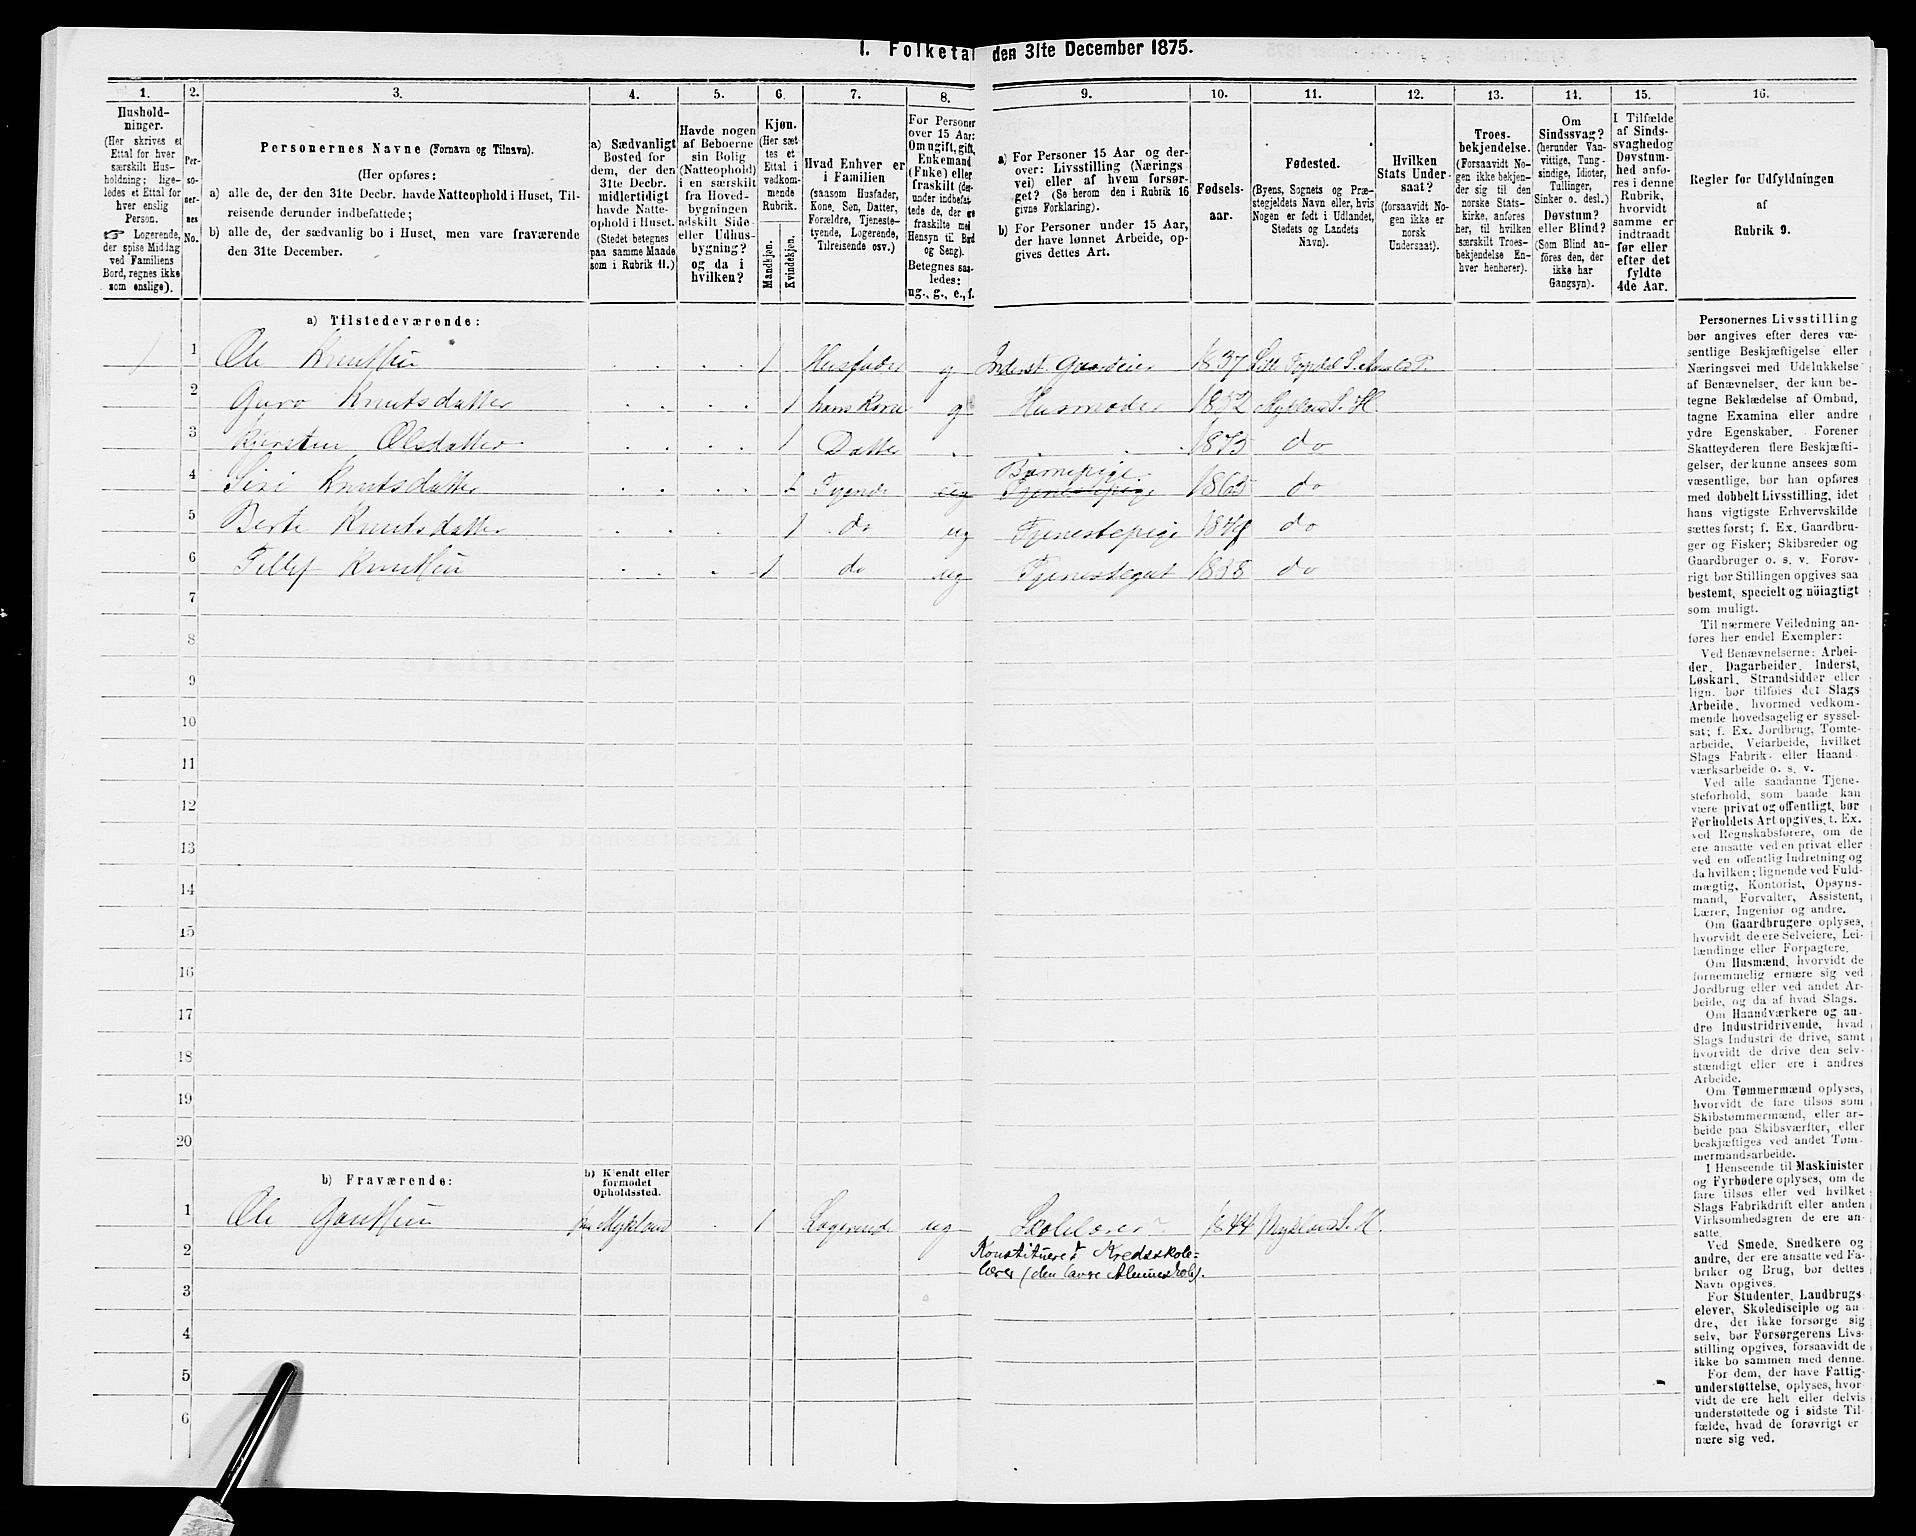 1. Folketal den 31te December 1875.
1. 2. 3. 4. 5. 6. 7. 8. 9. 10. 11. 12. 13. 14. 15. 16.
Hushold-
ninger.
(Her skrives et
Ettal for hver
særskilt Hus-
holdning; lige-
ledes et Ettal for
hver enslig
Person.
☞ Logerende,
der spise Middag
ved Familiens
Bord, regnes ikke
som enslige).
Per-
so-
ner-
nes
No.
Personernes Navne (Fornavn og Tilnavn).
(Her opføres:
a) alle de, der den 31te Decbr. havde Natteophold i Huset, Til-
reisende derunder indbefattede;
b) alle de, der sædvanlig bo i Huset, men vare fraværende
den 31te December.
a) Sædvanligt
Bosted for
dem, der den
31te Decbr.
midlertidigt
havde Natte-
ophold i Huset.
(Stedet betegnes
paa samme Maade
som i Rubrik 11.)
Havde nogen
af Beboerne
sin Bolig
(Natteophold)
i en særskilt
fra Hoved-
bygningen
adskilt Side-
eller Udhus-
bygning?
og da i
hvilken?
Kjøn.
(Her sæt-
tes et
Ettal i
vedkom-
mende
Rubrik.
Mandkjøn.
Kvindekjøn.
Hvad Enhver er
i Familien
(saasom Husfader,
Kone, Søn, Datter,
Forældre, Tjeneste-
tyende, Logerende,
Tilreisende osv.)
For Personer
over 15 Aar:
Om ugift, gift,
Enkemand
(Enke) eller
fraskilt (der-
under indbefat-
tede de, der ere
fraskilte med
Hensyn til Bord
og Seng).
Betegnes saa-
ledes:
ug., g., e., f.
a) For Personer 15 Aar og der-
over: Livsstilling (Nærings-
vei) eller af hvem forsør-
get? (Se herom den i Rubrik 16
givne Forklaring).
b) For Personer under 15 Aar,
der have lønnet Arbeide, op-
gives dettes Art.
Fødsels-
aar.
Fødested.
(Byens, Sognets og Præ-
stegjeldets Navn eller, hvis
Nogen er født i Udlandet,
Stedets og Landets
Navn).
Hvilken
Stats Under-
saat?
(forsaavidt No-
gen ikke er
norsk
Undersaat).
Troes-
bekjendelse.
(Forsaavidt No-
gen ikke bekjen-
der sig til den
norske Stats-
kirke, anføres
her, til hvilken
særskilt Troes-
bekjendelse En-
hver henhører).
Om
Sindssvag?
(herunder Van-
vittige, Tung-
sindige, Idioter,
Tullinger,
Sinker o. desl.)
Døvstum?
eller Blind?
(Som Blind an-
føres den, der
ikke har
Gangsyn).
I Tilfælde
af Sinds-
svaghed og
Døvstum-
hed anfø-
res i denne
Rubrik,
hvorvidt
samme er
indtraadt
før eller
efter det
fyldte
4de Aar.
Regler for Udfyldningen
af
Rubrik 9.
a) Tilstedeværende:
1 1 Ole Knutsen 1 Husfader g Inderst. Gaardeier 1837
2 Guro Knutsdatter 1 hans Kone g Husmoder 1852 Mykland S. H
3 Kirsten Olsdatter 1 Datter 1875 do
Barnepige
4 Siri Knutsdatter 1 Tyende ug Tjenestepige 1863 do
5 Berte Knutsdatter 1 do ug Tjenestepige do
6 Tellef Knutsen 1 do ug Tjenestegut 1858 do
7
8
9
10
11
12
13
14
15
16
17
18
19
20
b) Fraværende:
b) Kjendt eller
formodet
Opholdssted.
1 Ole Mykland 1 Logerende ug Skolelærer 1844 Mykland S. H.
2 Konstitueret Kredsskole-
lærer (den lavre Almueskole).
3
4
5
6
Personernes Livsstilling
bør angives efter deres væ-
sentlige Beskjæftigelse eller
Næringsvei med Udelukkelse
af Benævnelser, der kun be-
tegne Beklædelse af Ombud,
tagne Examina eller andre
ydre Egenskaber. Forener
Skatteyderen flere Beskjæfti-
gelser, der kunne ansees som
væsentlige, bør han opføres
med dobbelt Livsstilling, idet
hans vigtigste Erhvervskilde
sættes først; f. Ex. Gaardbru-
ger og Fisker; Skibsreder og
Gaardbruger o. s. v. Forøv-
rigt bør Stillingen opgives saa
bestemt, specielt og nöiagtigt
som muligt.
Til nærmere Veiledning an-
føres her endel Exempler:
Ved Benævnelserne: Arbei-
der, Dagarbeider, Inderst,
Løskarl, Strandsidder eller
lign. bør tilføies det Slags
Arbeide, hvormed vedkom-
mende hovedsagelig er syssel-
sat; f. Ex. Jordbrug, Tomte-
arbeide, Veiarbeide, hvilket
Slags Fabrik- eller Haand
værksarbeide o. s. v.
Ved alle saadanne Tjene-
steforhold, som baade kan
være privat og offentligt, bør
Forholdets Art opgives, f. Ex.
ved Regnskabsførere, om de
ere ansatte ved en privat eller
ved en offentlig Indretning og
da hvilken; lignende ved Fuld-
mægtig, Kontorist, Opsyns-
mand, Forvalter, Assistent,
Lærer, Ingeniør og andre.
Om Gaardbrugere oplyses,
hvorvidt de ere Selveiere, Lei-
lændinge eller Forpagtere.
Om Husmænd, hvorvidt de
fornemmelig ernære sig ved
Jordbrug eller ved andet Ar-
beide, og da af hvad Slags.
Om Haandværkere og an-
dre Industridrivende, hvad
Slags Industri de drive, samt
hvorvidt de drive den selv-
stændigt eller ere i andres
Arbeide.
Om Tømmermænd oplyses,
hvorvidt de fare tilsøs som
Skibstømmermænd, eller ar-
beide paa Skibsværfter, eller
beskjæftiges ved andet Tøm-
mermandsarbeide.
I Henseende til Maskinister
og Fyrbødere oplyses, om de
fare tilsøs eller ved hvilket
Slags Fabrikdrift eller anden
Virksomhedsgren de ere an-
satte.
Ved Smede, Snedkere og
andre, der ere ansatte ved Fa-
briker og Brug, bør dettes
Navn opgives.
For Studenter, Landbrugs-
elever, Skoledisciple og an-
dre, der ikke forsørge sig
selv, bør Forsørgerens Livs-
stilling opgives, forsaavidt de
ikke bo sammen med denne.
For dem, der have Fattig-
understøttelse, oplyses, hvor-
vidt de ere helt eller delvis
understøttede og i sidste Til-
fælde, hvad de forøvrigt er-
nære sig ved.